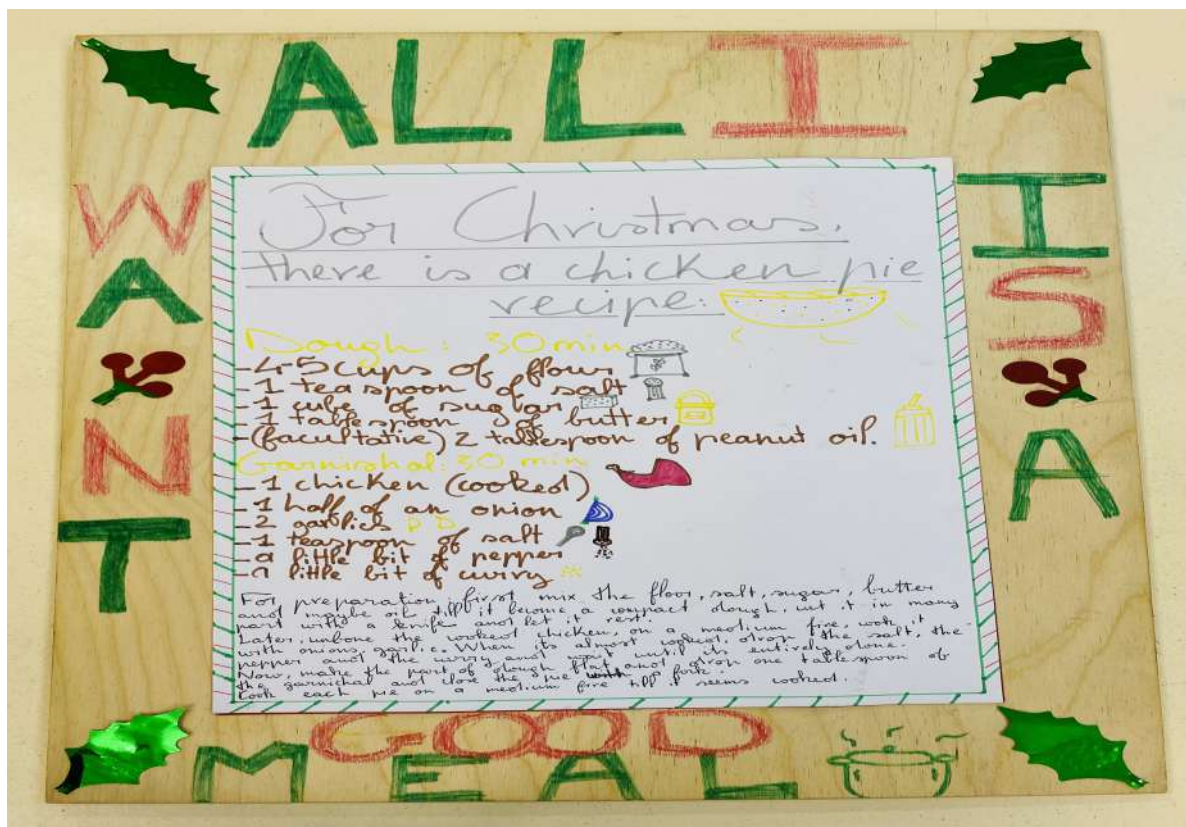 ALL I
WANT
IS A
For Christmas,
there is a chicken pie
recipe:
Dough: 30min
-4-5cups of flour
-1 tea spoon of salt
-1 cube of sugbar
-1 tablespoon of butter
-(facultative) 2 tablespoon of peanut oil.
Garnirshal: 30 min
-1 chicken (cooked)
-1 half of an onion
-2 garlics
-1 teaspoon of salt
-a little bit of pepper
-a little bit of curry
For preparation: first mix the floor, salt, sugar, butter
and maybe oil till it become a compact dough, cut it in many
part with a knife and let it rest.
Later, unbone the cooked chicken, on a medium fire, cook it
with onions, garlic. When its almost cooked, drop the salt, the
pepper and the curry and wait until its entirely done.
Now, make the part of dough flat and drop one tablespoon of
the garnichal and close the pie with a fork.
Cook each pie on a medium fire till it seems cooked.
GOOD
MEAL